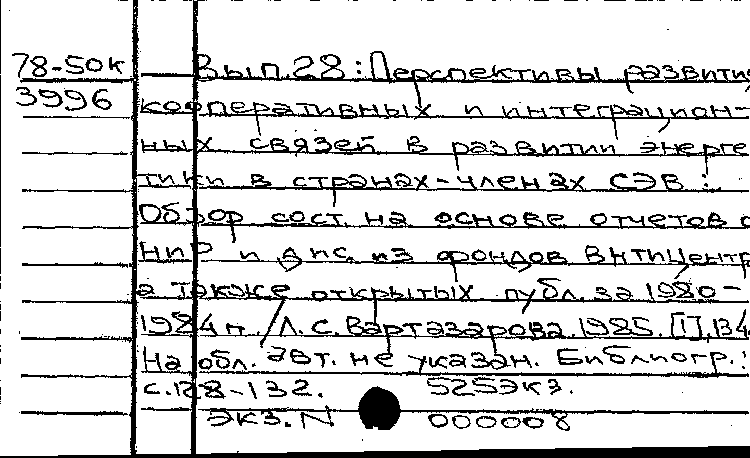 78-50к Вып.28: Перспективы развити
3996 кооперативных и интеграцион-
ных связей в развитии энерге
тики в странах-членах СЭВ:
Обзор сост. на основе отчетов о
НИР и дис. из фондов ВНТИЦентр
а также открытых публ. за 1980-
1984 г. /Л.С. Вартазарова. 1985. [1], 134
На обл. авт. не указан. Библиогр.:
с.128-132. 525экз.
экз. N 000008